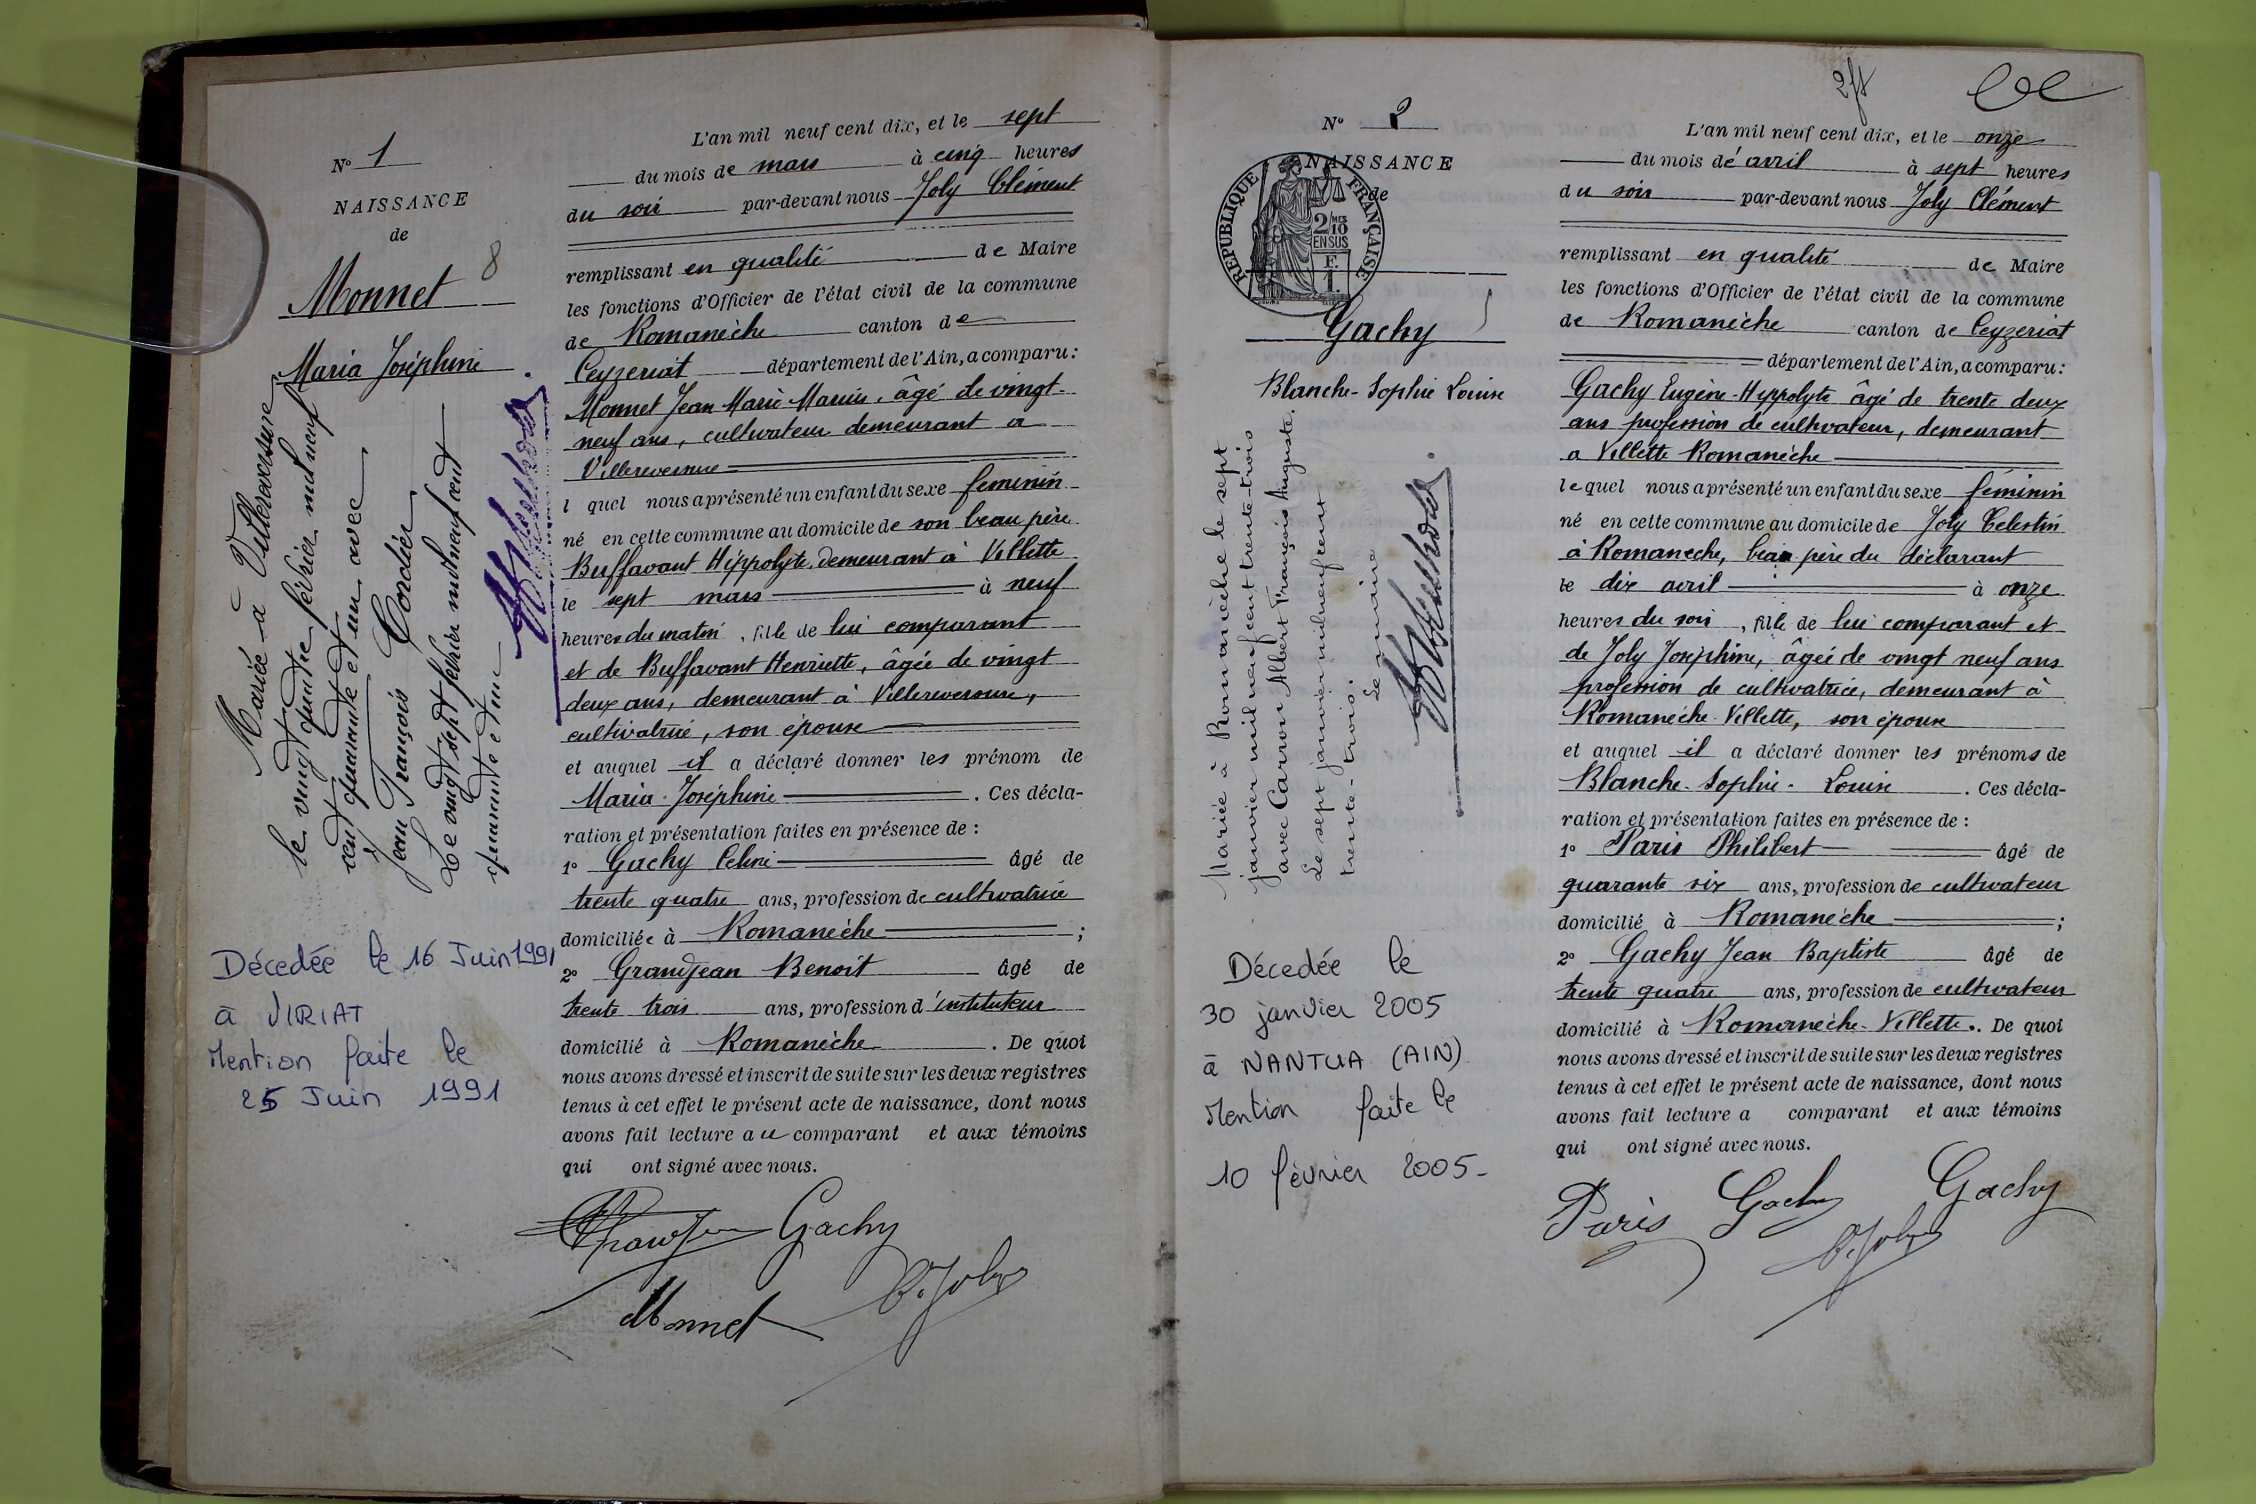 N° 1
NAISSANCE
de
Monnet 8
Maria Joséphine
Mariée à Villereversure
le vingt quatre février mil neuf
cent quarante et un avec
Jean François Cordier
Le vingt sept février mil neuf cent
quarante et un
Décedée le 16 Juin 1991
à VIRIAT
Mention faite le
25 Juin 1991
L'an mil neuf cent dix, et le sept
du mois de mars à cinq heures
du soir par-devant nous Joly Clément
remplissant en qualité de Maire
les fonctions d'Officier de l'état civil de la commune
de Romanèche canton de
Ceyzeriat département de l'Ain, a comparu :
Monnet Jean Marie Marius, âgé de vingt
neuf ans, cultivateur demeurant a
Villereversure
l quel nous a présenté un enfant du sexe féminin
né en cette commune au domicile de son beau père
Buffavant Hippolyte, demeurant à Villette
le sept mars à neuf
heures du matin, fille de lui comparant
et de Buffavant Henriette, âgée de vingt
deux ans, demeurant à Villereversure,
cultivatrice, son épouse
et auquel il a déclaré donner les prénom de
Maria Joséphine. Ces décla-
ration et présentation faites en présence de :
1° Gachy Celine âgé de
trente quatre ans, profession de cultivatrice
domiciliée à Romanèche ;
2° Grandjean Benoit âgé de
trente trois ans, profession d'instituteur
domicilié à Romanèche. De quoi
nous avons dressé et inscrit de suite sur les deux registres
tenus à cet effet le présent acte de naissance, dont nous
avons fait lecture au comparant et aux témoins
qui ont signé avec nous.
Grandjean Gachy
Monnet C. Joly
2ft
N° 2
NAISSANCE
de
REPUBLIQUE FRANÇAISE
2/10 MES
EN SUS
F.
1.
Gachy
Blanche-Sophie Louise
Mariée à Romanèche le sept
janvier mil neuf cent trente-trois
avec Carron Albert François Auguste.
Le sept janvier mil neuf cent
trente-trois.
Le maire
Décedée le
30 janvier 2005
à NANTUA (AIN)
Mention faite le
10 février 2005-
L'an mil neuf cent dix, et le onze
du mois d'avril à sept heures
du soir par-devant nous Joly Clément
remplissant en qualité de Maire
les fonctions d'Officier de l'état civil de la commune
de Romanèche canton de Ceyzeriat
département de l'Ain, a comparu :
Gachy Eugène-Hyppolyte âgé de trente deux
ans profession de cultivateur, demeurant
a Villette Romanèche
lequel nous a présenté un enfant du sexe féminin
né en cette commune au domicile de Joly Celestin
à Romaneche, beau père du déclarant
le dix avril à onze
heures du soir, fille de lui comparant et
de Joly Joséphine, âgée de vingt neuf ans
profession de cultivatrice, demeurant à
Romanèche-Villette, son épouse
et auquel il a déclaré donner les prénoms de
Blanche-Sophie-Louise. Ces décla-
ration et présentation faites en présence de :
1° Paris Philibert âgé de
quarante six ans, profession de cultivateur
domicilié à Romanèche ;
2° Gachy Jean Baptiste âgé de
trente quatre ans, profession de cultivateur
domicilié à Romanèche-Villette. De quoi
nous avons dressé et inscrit de suite sur les deux registres
tenus à cet effet le présent acte de naissance, dont nous
avons fait lecture a comparant et aux témoins
qui ont signé avec nous.
Paris Gachy Gachy
C. Joly